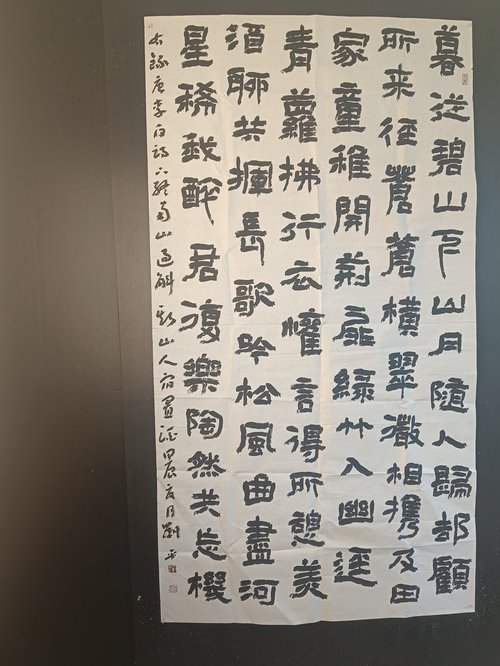 暮從碧山下山月隨人歸却顧
所来徑蒼蒼橫翠微相攜及田
家童稚開荊扉綠竹入幽逕
青蘿拂行衣懽言得所憩美
酒聊共揮長歌吟松風曲盡河
星稀我醉君復樂陶然共忘機
右錄唐李白詩下終南山過斛斯山人宿置酒甲辰夏月劉平